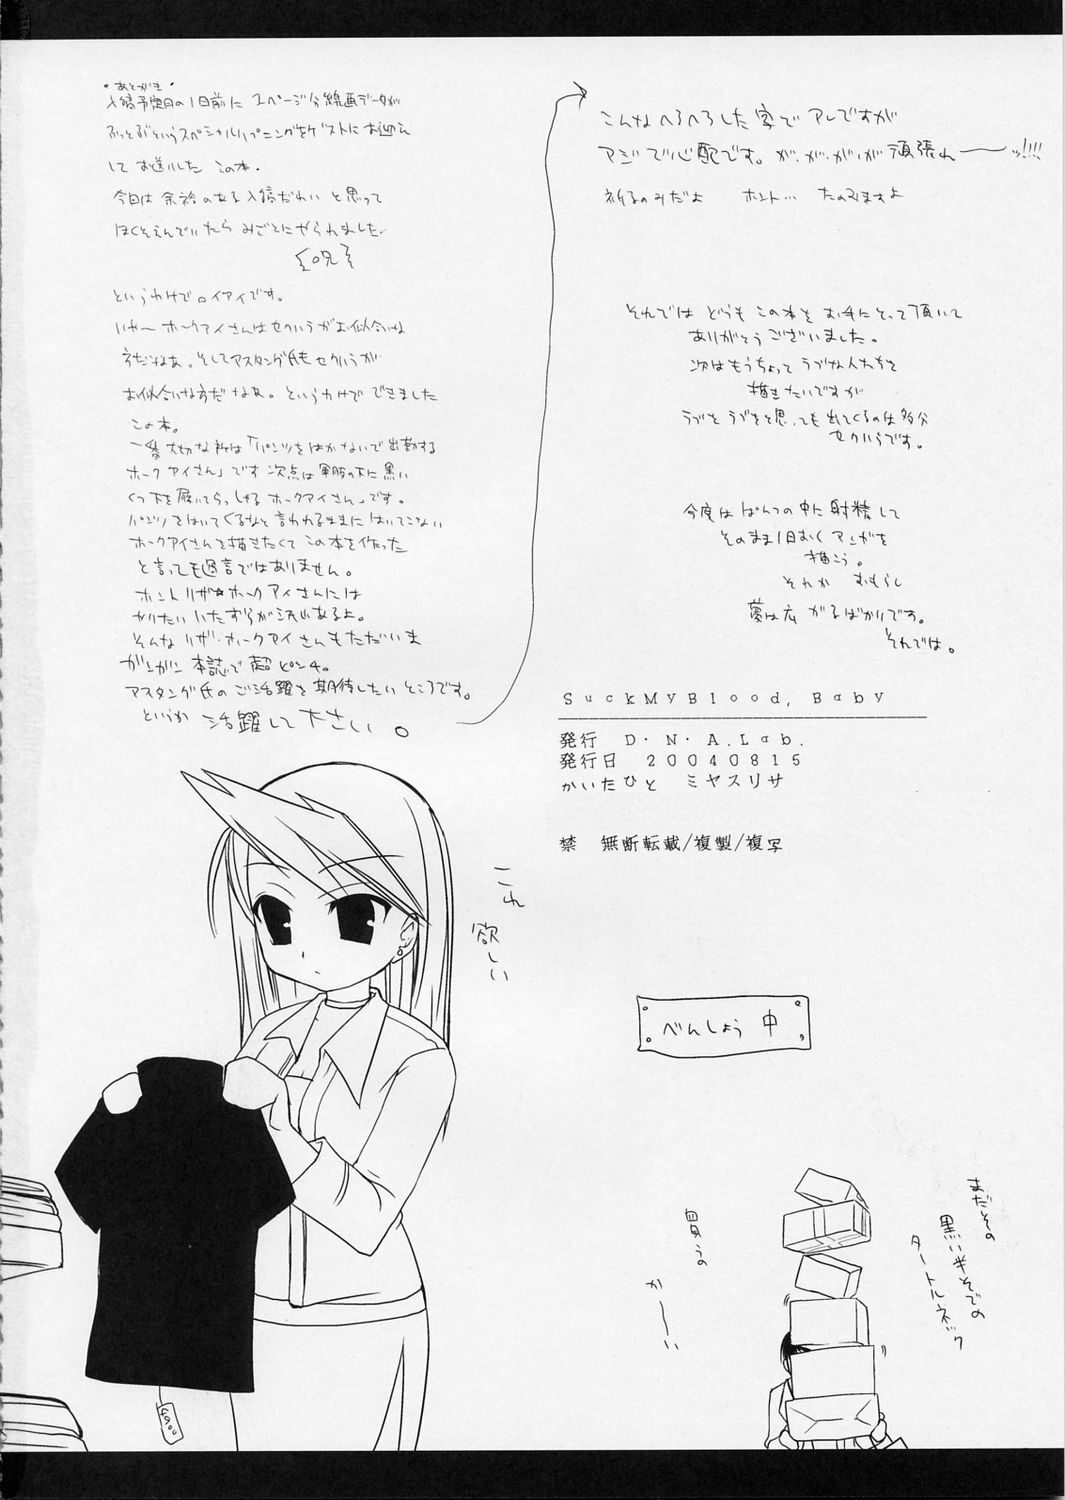 ・あとがき・
入稿予定日の1日前に 1ページ分線画データが
ぶっとぶというスペシャルハプニングをゲストにお迎え
して お送りした この本。
今回は余裕のある入稿だわい と思って
ほくそえんでいたら みごとにやられました。
呪
というわけでロイアイです。
いやー ホークアイさんはセクハラがお似合いな
方だなあ。そしてマスタング氏もセクハラが
お似合いな方だなあ。というわけで できました
この本。
一番大切な所は「パンツをはかないで出勤する
ホークアイさん」です 次点は軍服の下に黒い
くつ下を履いてらっしゃるホークアイさん」です。
パンツをはいてくるなと言われるままに はいてこない
ホークアイさんを描きたくて この本を作った
と言っても過言ではありません。
ホント リザ★ホークアイさんには
かりたい いたずらが沢山あるよ。
そんな リザ・ホークアイさんもただいま
ガンガン 本誌で 超ピンチ。
マスタング氏の ご活躍を期待したい ところです。
というか 活躍して下さい。
こんなへろへろした字で アレですが
マジで心配です。が、が、が、が 頑張れーーッ!!!!
祈るのみだよ ホント… たのみますよ
それでは どうも この本を お手にとって頂いて
ありがとうございました。
次はもうちょって ラブな人たちを
描きたいですが
ラブを ラブをと思っても 出てくるのは多分
セクハラです。
今度は ぱんつの中に射精して
そのまま1日おくマンガを
描こう。
それか おもらし
夢は広がるばかりです。
それでは。
SuckMyBlood, Baby
発行 D・N・A.Lab.
発行日 20040815
かいたひと ミヤスリサ
禁 無断転載/複製/複写
これ
欲しい
べんしょう中
まだその
黒い半そでの
タートルネック
買うの
かーーい
4900